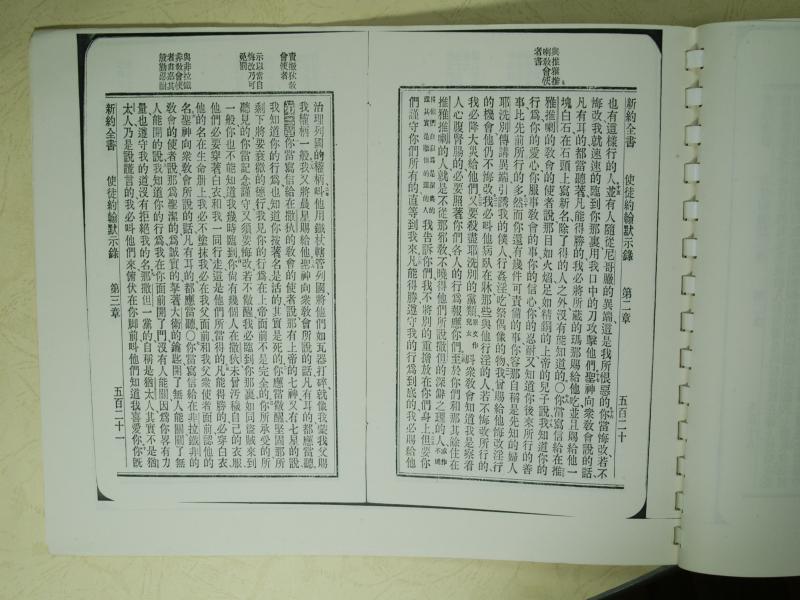 新約全書 使徒約翰默示錄 第二章 五百二十
也有這樣行的人並有人隨從尼哥臘的異端這是我所恨惡的你當悔改若不
悔改我就速速的臨到你那裏用我口中的刀攻擊他們聖神向衆敎會說的話
凡有耳的都當聽著凡能得勝的我必將所藏的瑪那賜給他吃並且賜給他一
塊白石在石頭上寫新名除了得的人之外沒有能知道的〇你當寫信給在推
雅推喇的敎會的使者說那目如火焰足如精銅的上帝的兒子說我知道你的
行為你的愛心你服事敎會的事你的信心你的忍耐又知道你後來所行的善
事比先前所行的多然而你還有幾件可責備的事你容那自稱是先知的婦人
耶洗別傳講異端引誘我的僕人行姦淫吃祭偶像的物我曾賜給他悔改淫行
的機會他仍不悔改我必叫他病臥在牀那些與他行淫的人若不悔改所行的
我必降大災給他們又要殺盡耶洗別的黨類衆敎會知道我是察看
人心腹腎腸的必要照著你們各人的行為報應你們至於你們和那其餘住在
推雅推喇的人就是不從那邪敎不曉得他們所說撒但的深僻之理的人
我告訴你們我不將別的重擔放在你們身上但要你
們謹守你們所有的直等到我來凡能得勝遵守我的行為到底的我必賜給他
與推雅推
喇敎會使
者書
新約全書 使徒約翰默示錄 第三章 五百二十一
治理列國的權柄叫他用鐵杖轄管列國將他們如瓦器打碎就像我蒙我父賜
我權柄一般我又將晨星賜給他聖神向衆敎會所說的話凡有耳的都應當聽
第三章你當寫信給在撒狄的敎會的使者說那有上帝的七神又有七星的說
我知道你的行為也知道你按著名是活的其實是死的你應當儆醒堅固那所
剩下將要衰微的德行我見你的行為在上帝面前不是完全的你所承受的所
聽見的你當記念謹守又須要悔改若不儆醒我必臨到你那裏如同盜賊來到
一般你也不能知道我幾時臨到你倘有幾個人在撒狄未曾汚穢自己的衣服
他們必要穿著白衣和我一同行走這是他們所當得的凡能得勝的必穿白衣
他的名在生命册上我必不塗抹我必在我父面前和我父衆使者面前認他的
名聖神向衆敎會所說的話凡有耳的都應當聽〇你當寫信給在非拉鐵非的
敎會的使者說那為聖潔的為誠實的拏著大衛的鑰匙開了無人能關關了無
人能開的說我知道你的行為我在你面前開了門沒有人能關因為你畧有力
量也遵守我的道沒有拒絕我的名那撒但一黨的自稱是猶太人其實不是猶
太人乃是說謊言的我必叫他們來俯伏在你脚前叫他們知道我喜愛你你旣
責撒狄敎
會使者
示以當自
悔改乃可
免罰
與非拉鐵
非敎會使
者書嘉其